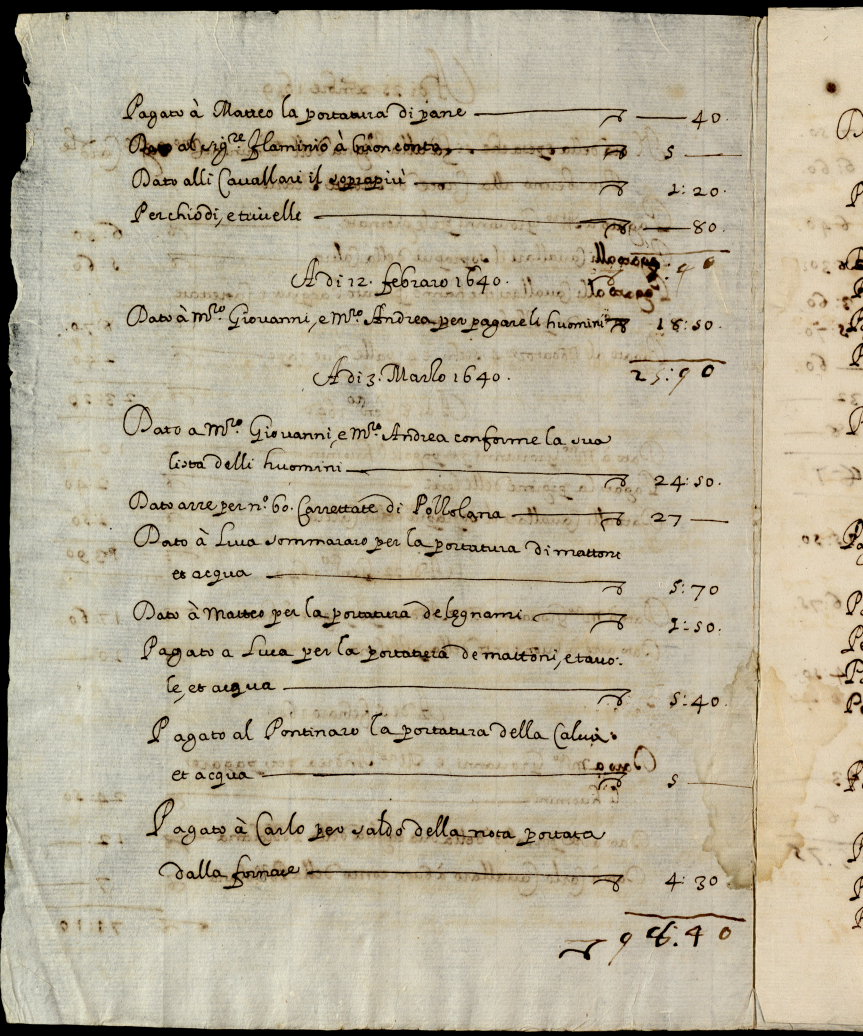 Pagato à Matteo la portatura di pane — 40.
Dato al Sig.re flaminio à buon conto, 5 —
Dato alli Cavallari il soprapiù 1: 20.
Per chiodi, e trivelle — 80.
A di 12. febraro 1640.
Dato à m.ro Giovanni, e m.ro Andrea per pagare li huomini 18: 50.
25: 90
A di 3. Marzo 1640.
Dato a m.ro Giovanni, e m.ro Andrea conforme la sua
lista delli huomini 24: 50.
Dato arre per n.o 60. Carrettate di Pozzolana 27 —
Dato à Luca sommararo per la portatura di mattoni
et acqua 5: 70
Dato à Matteo per la portatura de legnami 1: 50.
Pagato a Luca per la portatura de mattoni, e tavo:
le, et acqua 5: 40.
Pagato al Pontinaro la portatura della Calcia
et acqua 5 —
Pagato à Carlo per saldo della nota portata
dalla fornace 4: 30
98: 40